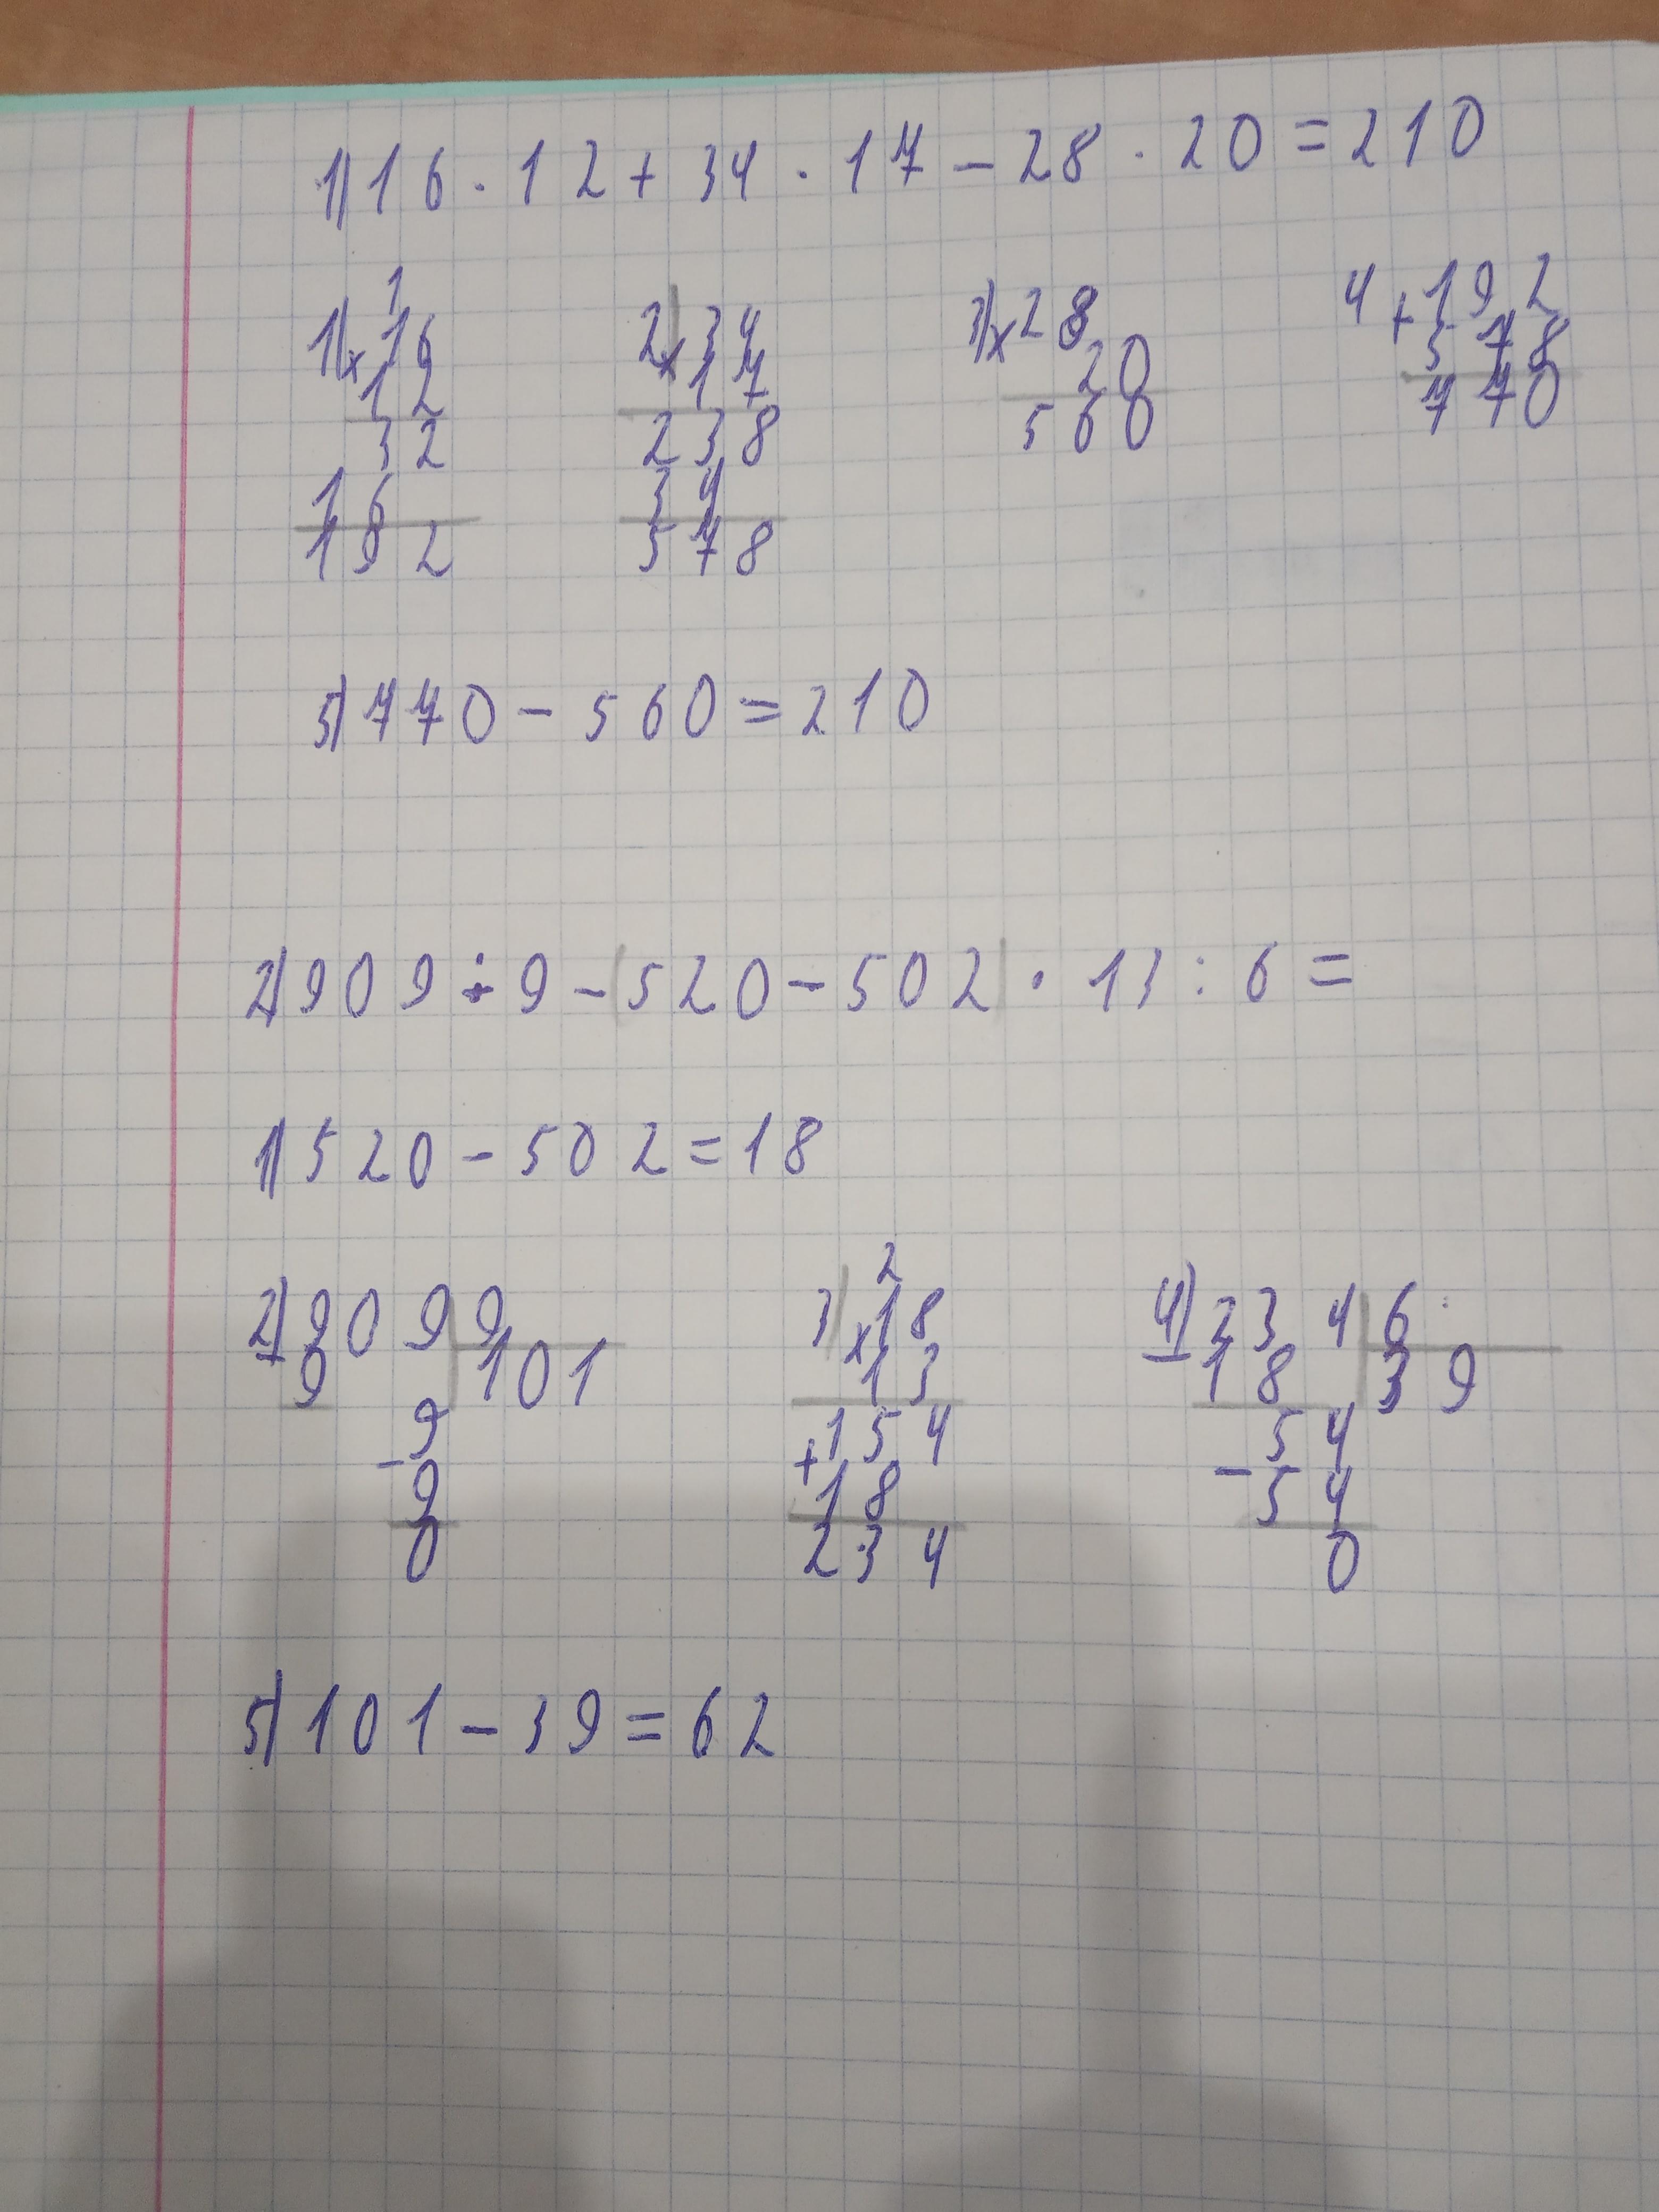 1) 16 · 12 + 34 · 17 - 28 · 20 = 210
1) 1
x 16
12
32
16
192
2) x 34
17
238
34
578
3) x 28
20
560
4 + 192
578
770
5) 770 - 560 = 210
2) 909 ÷ 9 - (520 - 502) · 13 : 6 =
1) 520 - 502 = 18
2) - 909 | 9
9 101
- 9
9
0
3) 2
x 18
13
+ 154
18
234
4) - 234 | 6
18 39
- 54
54
0
5) 101 - 39 = 62